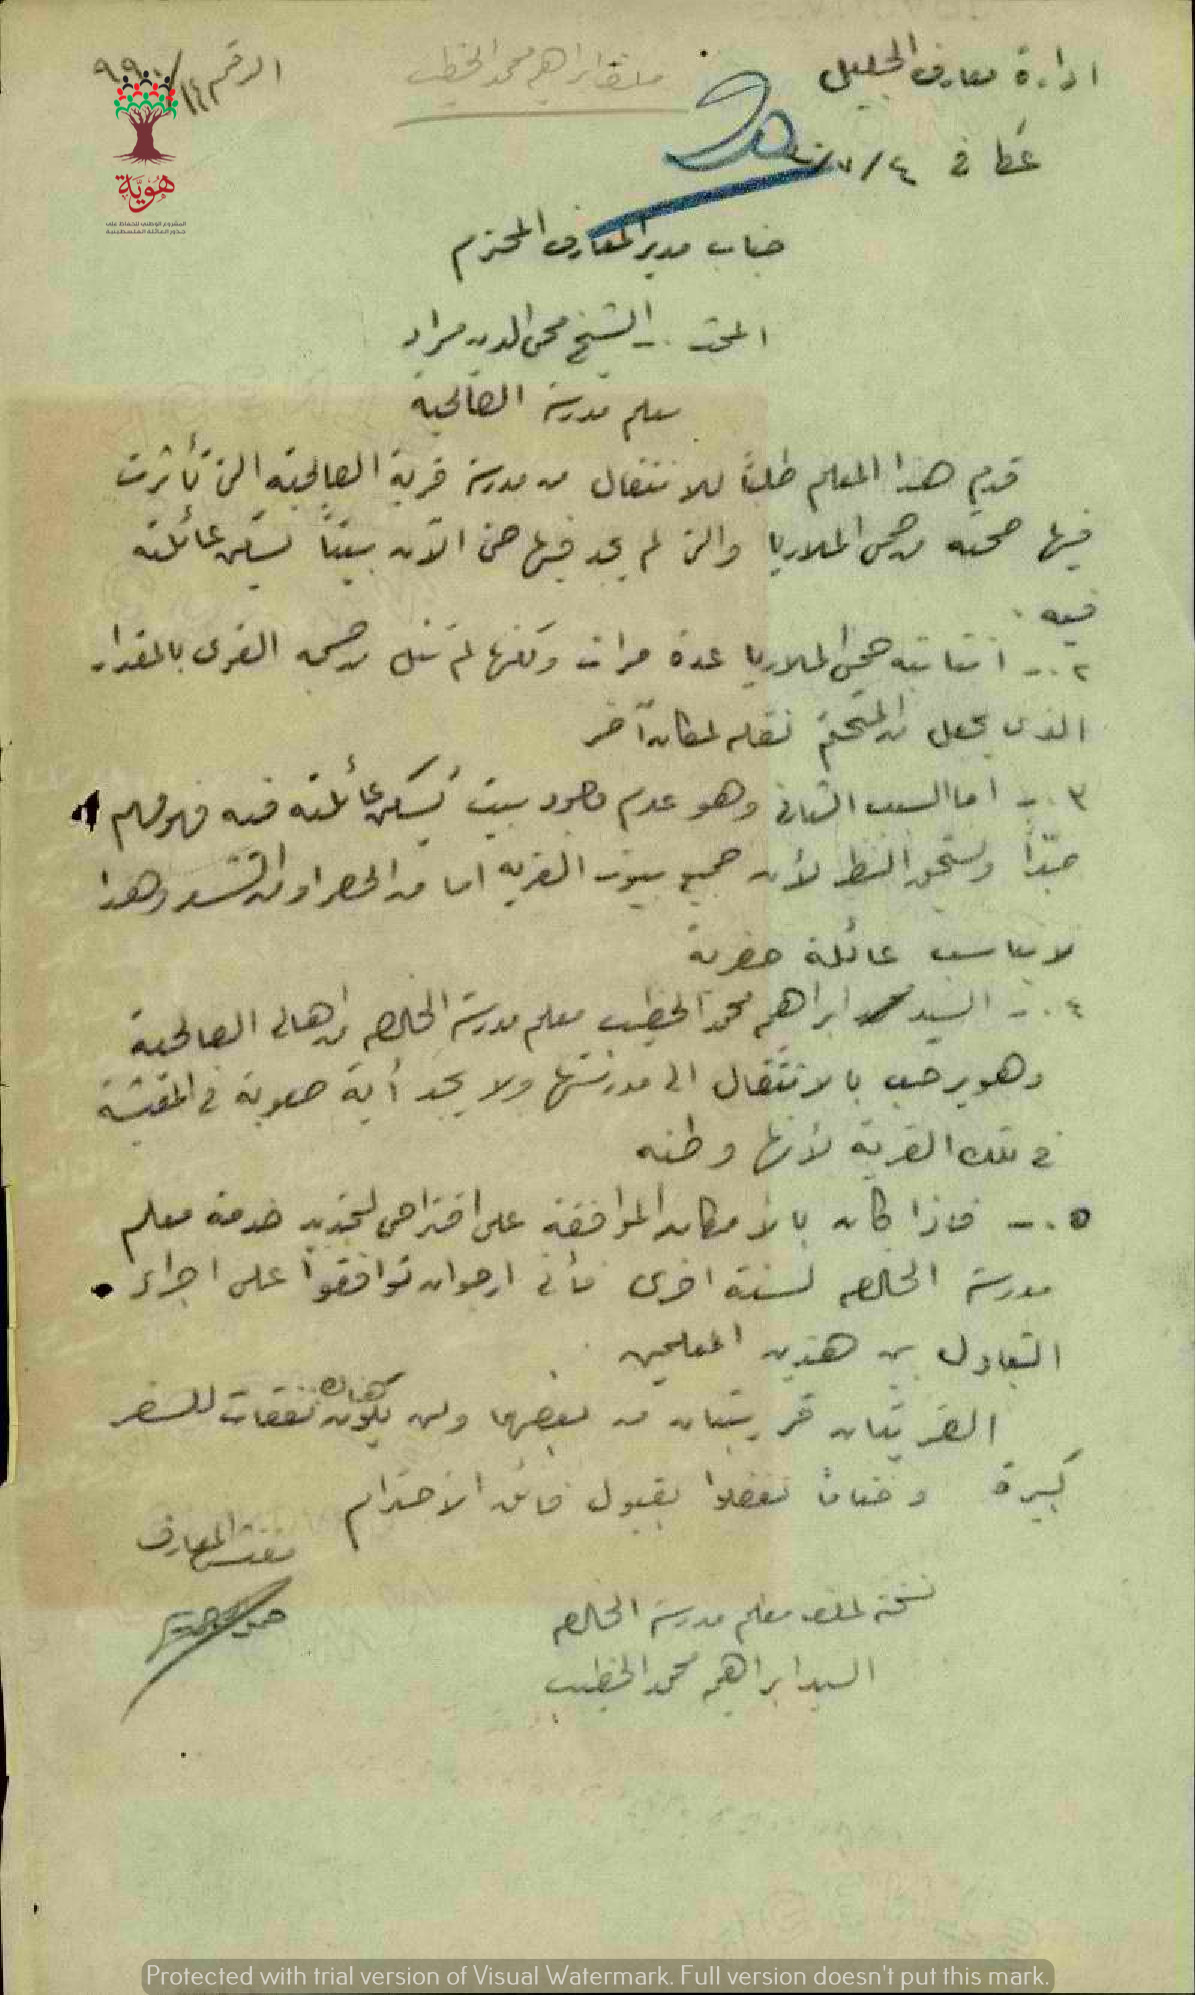 ادارة معارف الجليل
ملف ابراهيم محمد الخطيب
الرقم
عكا في ٤/٧/
جناب مدير المعارف المحترم
الشيخ محي الدين مراد
معلم مدرسة الصالحية
قدم هذا المعلم طلباً للانتقال من مدرسة قرية الصالحية التي تأثرت
فيها صحته من حمى الملاريا والتي لم يجد فيها حتى الآن بيتاً يسكن عائلته
فيه .
٢ .- انتابته حمى الملاريا عدة مرات ولكنها لم تنل من جسمه القوى بالمقدار
الذى يجعل من المتحتم نقله لمكان آخر
٣ .- اما السبب الثاني وهو عدم وجود بيت يُسكن عائلته فيه فهو مهم
جداً ويستحق النظر لأن جميع بيوت القرية اما من الحصر او من الشعر وهذا
لا يناسب عائلة حضرية
٤ .- السيد ابراهيم محمد الخطيب معلم مدرسة الخالصه من اهالى الصالحية
وهو يرغب بالانتقال الى مدرستها ولا يجد أية صعوبة في المعيشة
في تلك القرية لأنها وطنه
٥ .- فاذا كان بالامكان الموافقة على اقتراحي لتجديد خدمة معلم
مدرسة الخالصه لسنة اخرى فأني ارجو ان توافقوا على اجراء
التبادل بين هذين المعلمين .
القريتان قريبتان من بعضهما ولن يكون هناك نفقات للسفر
كبيرة وختاماً تفضلوا بقبول فائق الاحترام
مفتش المعارف
نسخة لملف معلم مدرسة الخالصه
السيد ابراهيم محمد الخطيب
هُويّة
المشروع الوطني للحفاظ على
جذور العائلة الفلسطينية
Protected with trial version of Visual Watermark. Full version doesn't put this mark.